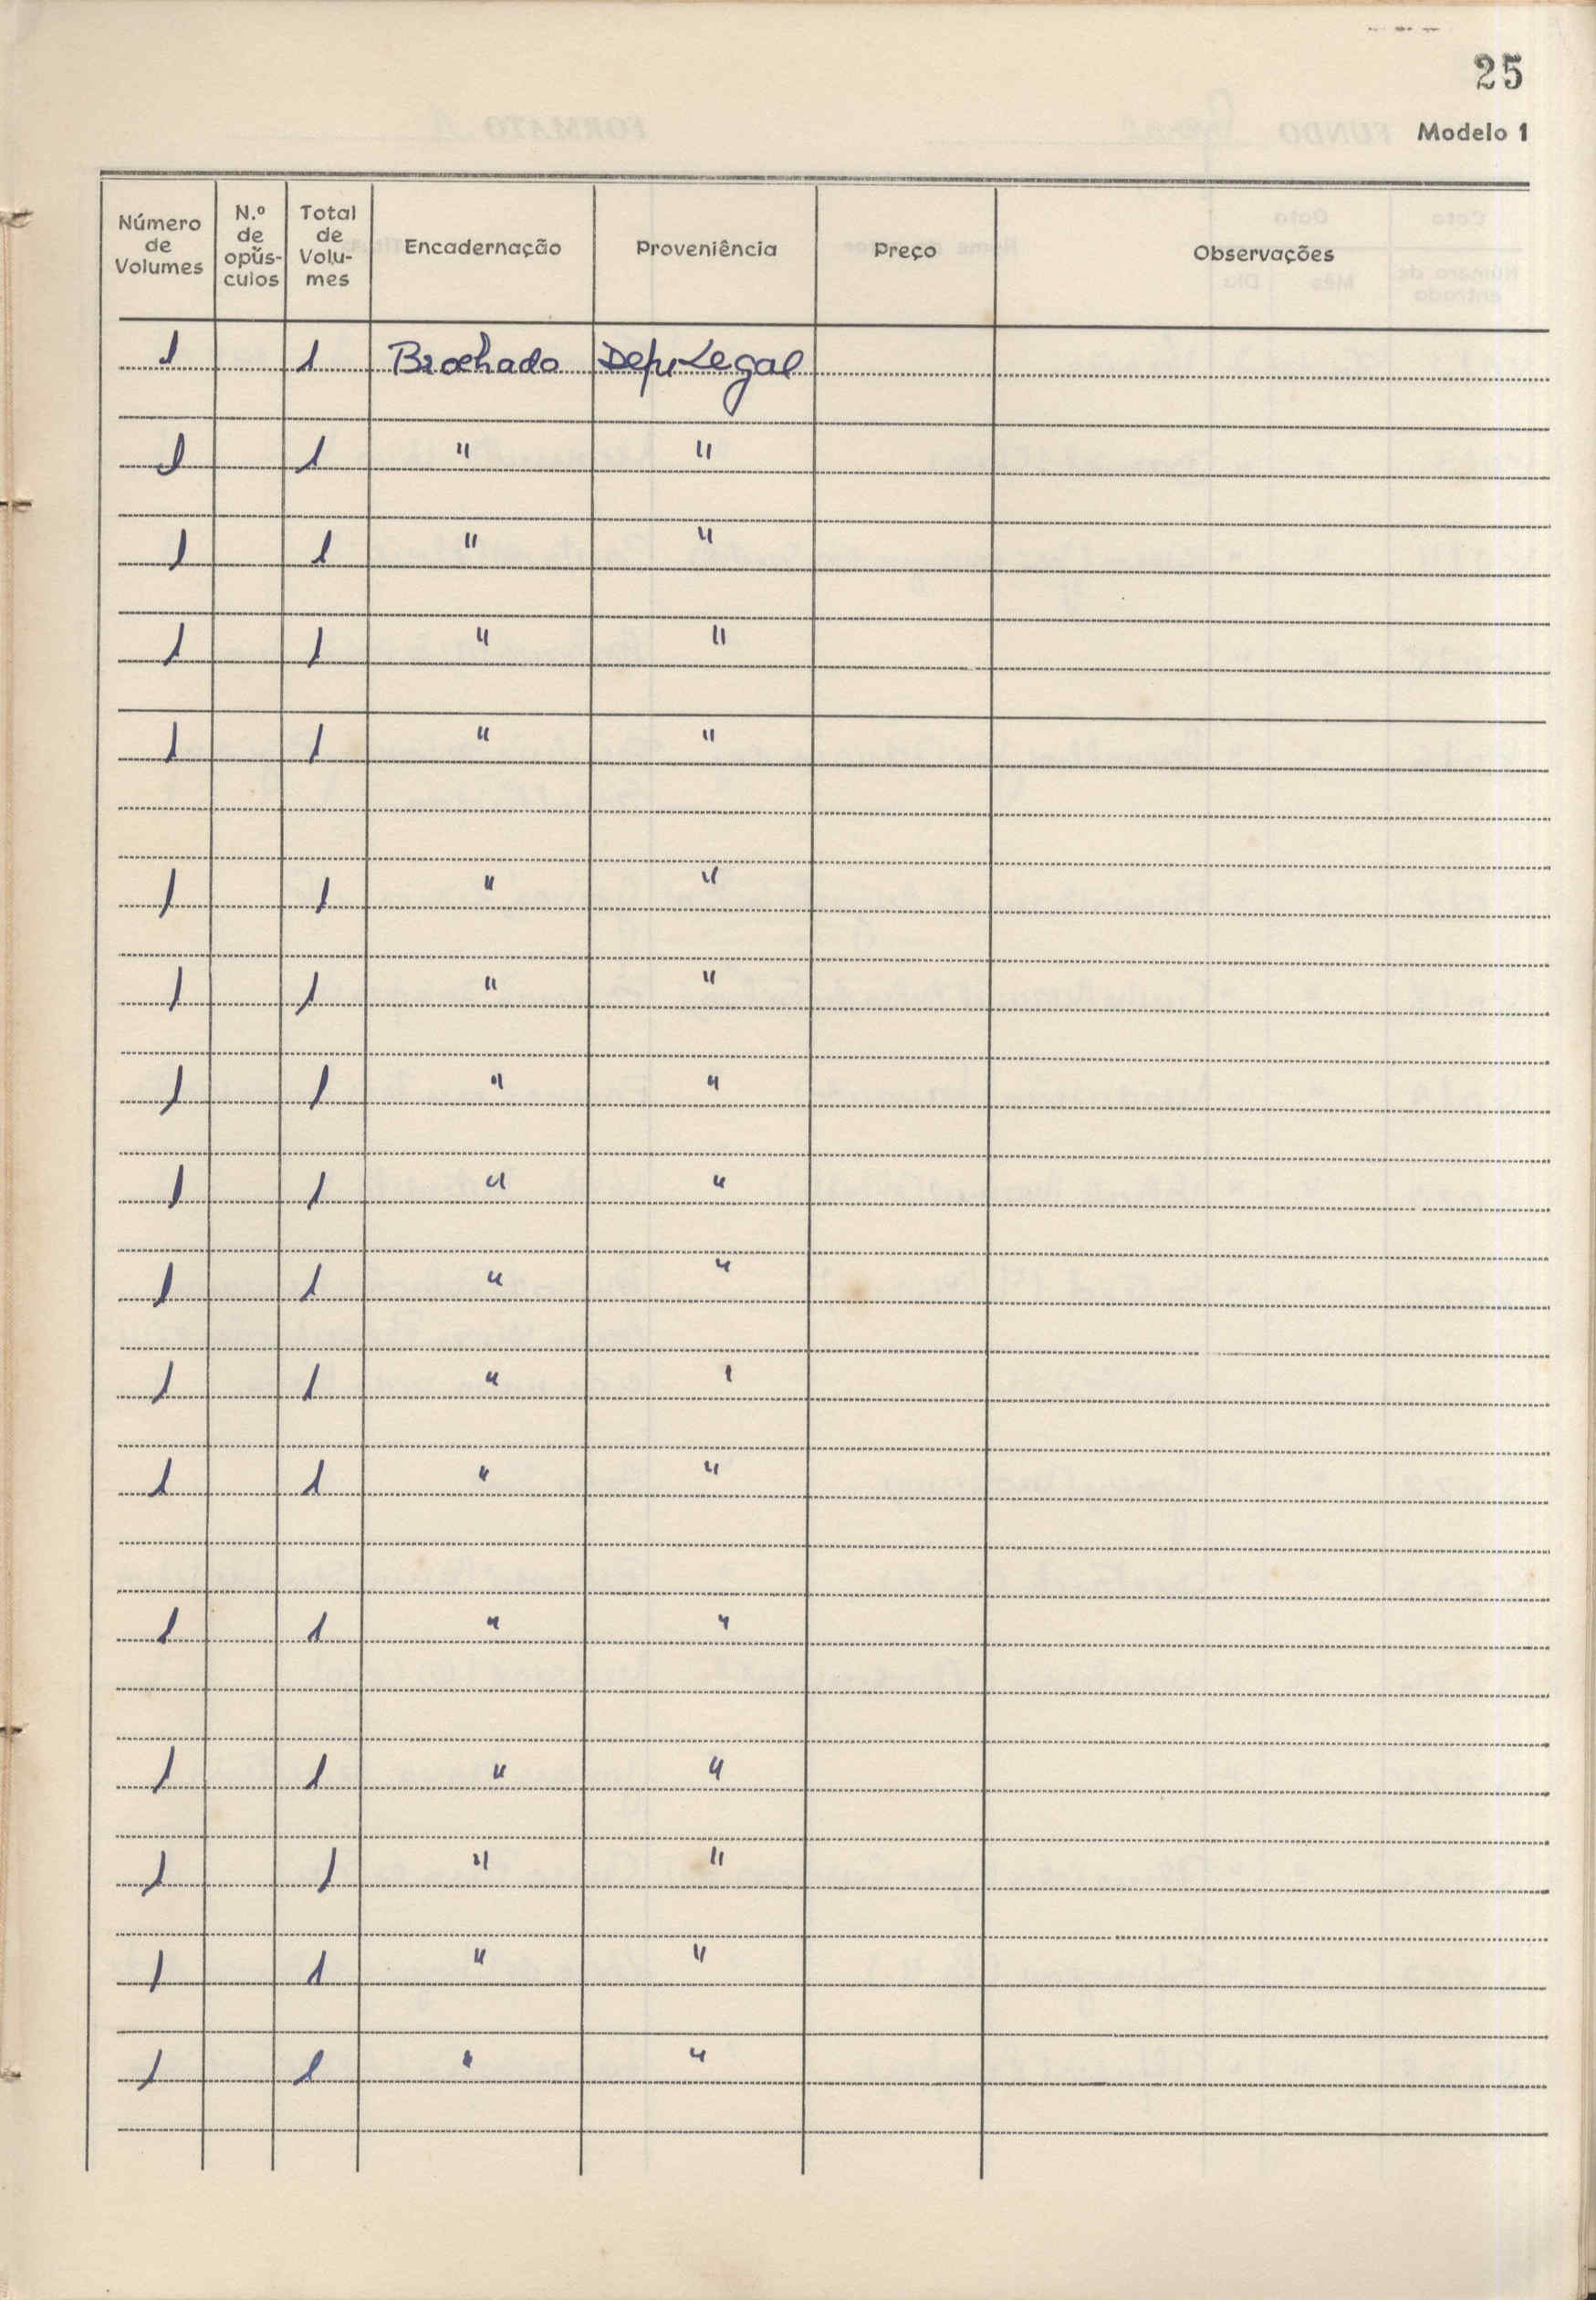 25
Modelo 1
Número de Volumes
N.º de opús-culos
Total de Volu-mes
Encadernação
Proveniência
Preço
Observações
1 1 Brochado Dep. Legal
1 1 " "
1 1 " "
1 1 " "
1 1 " "
1 1 " "
1 1 " "
1 1 " "
1 1 " "
1 1 " "
1 1 " '
1 1 " "
1 1 " "
1 1 " "
1 1 " "
1 1 " "
1 1 " "